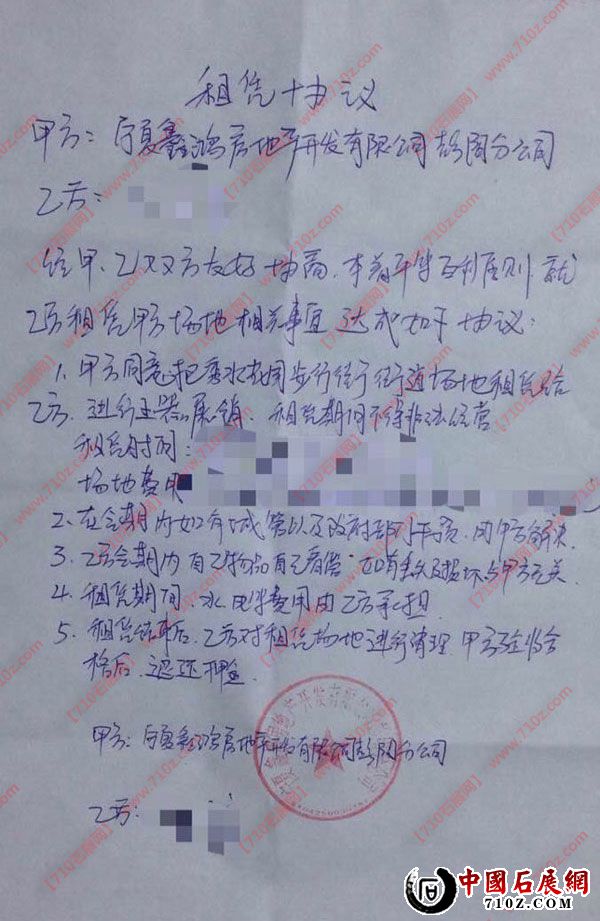 租凭协议
甲方:宁夏鑫鸿房地产开发有限公司彭阳分公司
乙方:
经甲、乙双方友好协商,本着平等互利原则就
乙方租凭甲方场地相关事宜达成如下协议:
1、甲方同意把 步行街街道场地租凭给
乙方、进行玉器展销、租凭期间不得非法经营
租凭时间:
场地费用
2、在会期内如有城管以及政府部门干预,由甲方解决
3、乙方会期内自己物品自己看管,如有丢失及损坏与甲方无关
4、租凭期间、水电费用由乙方承担
5、租凭结束后、乙方对租凭场地进行清理、甲方验收合
格后、退还押金
甲方:宁夏鑫鸿房地产开发有限公司彭阳分公司
乙方:
中國石展網
710z.com
【710石展网】 www.710z.com